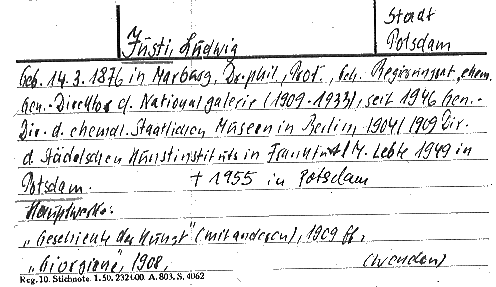 Stadt
Justi, Ludwig Potsdam
Geb. 14.3.1876 in Marburg, Dr. phil., Prof., Geh. Regierungsrat, ehem.
Gen.-Direktor d. Nationalgalerie (1909-1933), seit 1946 Gen.-
Dir. d. ehemal. Staatlichen Museen in Berlin, 1904/1909 Dir.
d. Städelschen Kunstinstituts in Frankfurt/M. Lebte 1949 in
Potsdam. † 1955 in Potsdam
Hauptwerke:
„Geschichte der Kunst" (mit anderen), 1909 ff,
„Giorgione", 1908, (wenden)
Reg. 10. Stichnote. 1. 50. 232400. A. 803. S. 4062